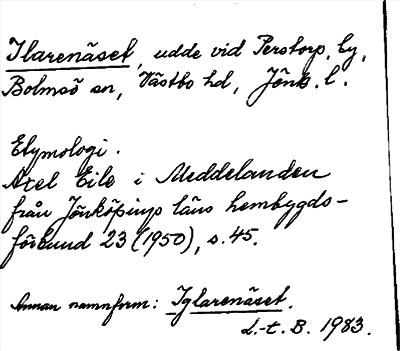 Ilarenäset, udde vid Perstorp, by,
Bolmsö sn, Västbo hd, Jönk. l.
Etymologi.
Axel Eile i Meddelanden
från Jönköpings läns hembygds-
förbund 23 (1950), s. 45.
Annan namnform: Iglarenäset.
L.-t. B. 1983.